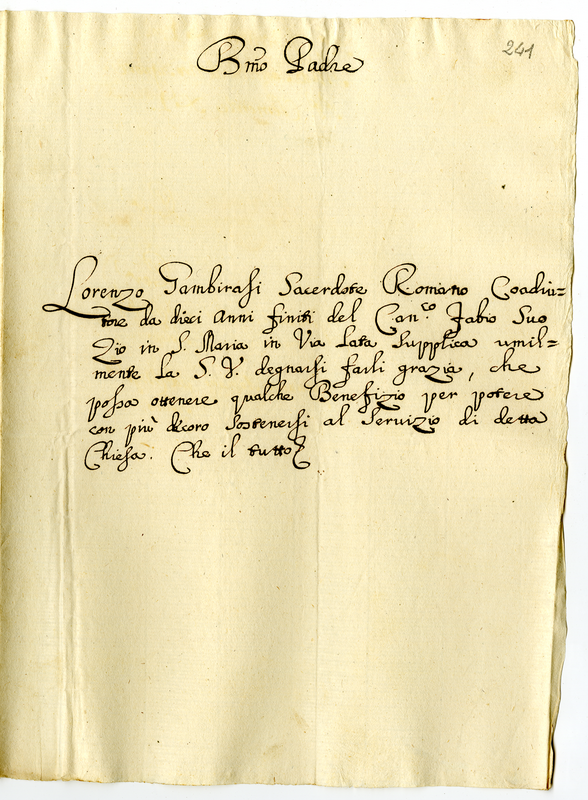 241
Bmo Padre
Lorenzo Tambirasi Sacerdote Romano Coadiu=
tore da dieci anni finiti del Can.co Fabio Suo
Zio in S. Maria in Via Lata supplica umil=
mente la S. V. degnarsi farli grazia, che
possa ottenere qualche Benefizio per potere
con più decoro sostenersi al Servizio di detta
Chiesa. Che il tutto